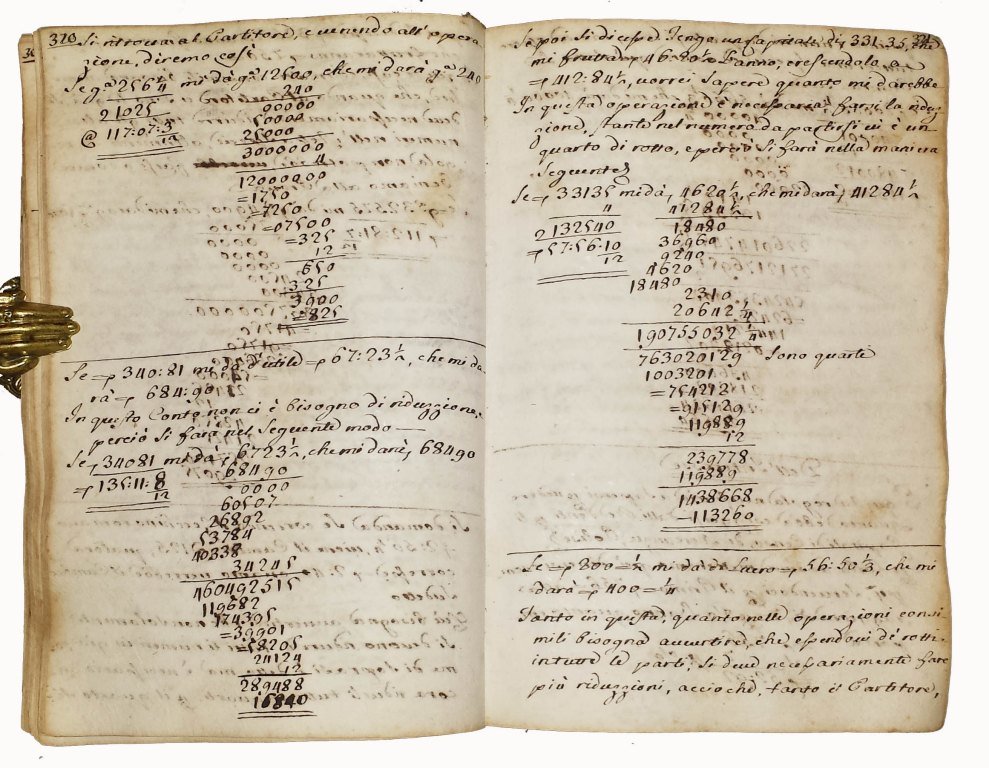 320
Si ritrova al Partitore, e venendo all'opera
zione, diremo così
Se q.ᵃ 256¼ mi dà q.ᵃ 12500, che mi darà q.ᵃ 240
4 240
21025 00000
@ 117:07:3 50000
12 25000
3000000
4
12000000
=1750
=7250
=07500
=325
12
650
325
3900
=825
Se 340:81 mi dà d'utile 67:23½, che mi da
rà 684:90
In questo Conto non ci è bisogno di riduzzione,
perciò si farà nel seguente modo
Se 34081 mi dà 6723½, che mi darà 68490
135:11:8 68490
12 0000
60507
26892
53784
40338
34245
460492515
119682
174395
=39901
=58205
24124
12
289488
16840
321
Se poi si dicesse Tengo un capitale di 331:35, che
mi frutta 46:20½ l'anno, crescendolo a
412:84½, vorrei sapere quanto mi darebbe
In questa operazione è necessaria farsi la riduz
zione, stante nel numero da partirsi vi è un
quarto di rotto, e perciò si farà nella maniera
seguente
Se 33135 mi dà 4620½, che mi darà 41284½
4 41284½
2132540 18480
57:56:10 36960
12 9240
4620
18480
2310
20642¼
190755032¼
763020129 Sono quarte
1003201
=754212
=915129
119889
12
239778
119889
1438668
113260
Se 200=½ mi dà di Lucro 56:50⅓, che mi
darà 400=¼
Tanto in questa, quanto nelle operazioni consi
mili bisogna avvertire, che essendovi de rotti
in tutte le parti, si deve necessariamente fare
più riduzzioni, acciochè, tanto il Partitore,